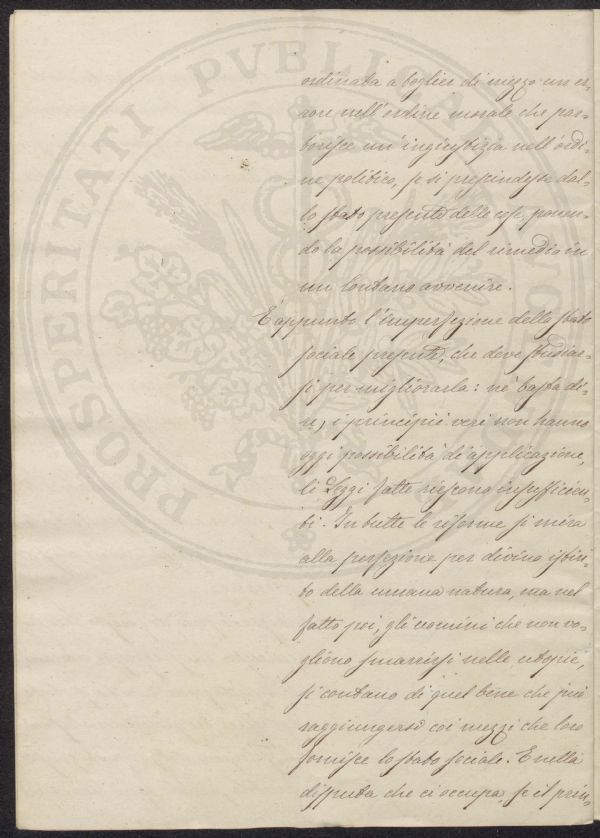 ordinata a togliere di mezzo un er-
rore nell'ordine morale che par-
torisce un'ingiustizia nell'ordi-
ne politico, se si prescindesse dal-
lo stato presente delle cose, ponen-
do la possibilità del rimedio in
un lontano avvenire.
È appunto l'imperfezione dello stato
sociale presente, che deve studiar-
si per migliorarla: nè basta di-
re, i principii veri non hanno
oggi possibilità di applicazione,
li Leggi fatte riescono insufficien-
ti. In tutte le riforme si mira
alla perfezione per divino istin-
to della umana natura, ma nel
fatto poi, gli uomini che non vo-
gliono smarrirsi nelle utopie,
si contano di quel bene che può
raggiungersi coi mezzi che loro
fornisce lo stato sociale. E nella
disputa che ci occupa, se il prin-
PROSPERITATI PVBLICAE